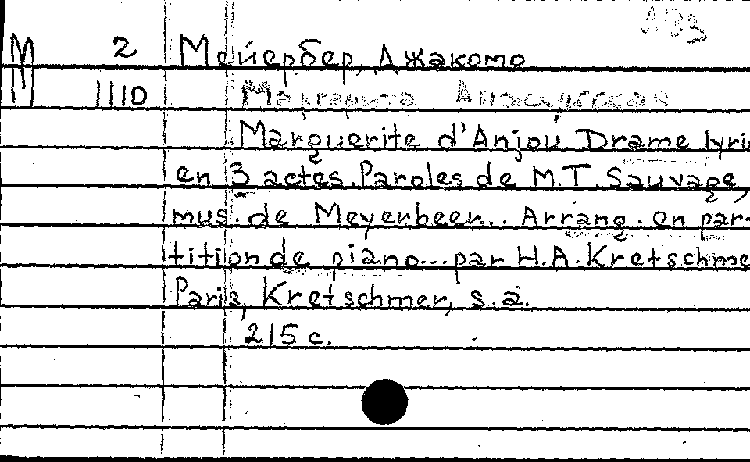 М 2 Мейербер, Джакомо
1110 Маргарита Анжуйская
Marguerite d'Anjou. Drame lyri
en 3 actes. Paroles de M.T. Sauvage,
mus. de Meyerbeer.. Arrang. en par-
tition de piano... par H.A. Kretschme
Paris, Kretschmer, s.a.
215 c.